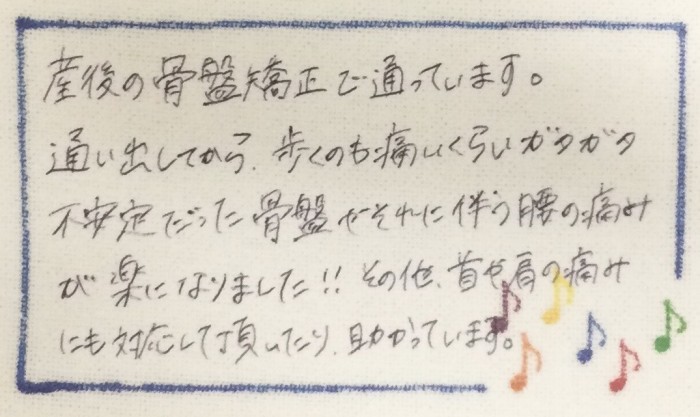 産後の骨盤矯正で通っています。
通い出してから、歩くのも痛いくらいガタガタ
不安定だった骨盤やそれに伴う腰の痛み
が楽になりました!! その他、首や肩の痛み
にも対応して頂いたり、助かっています。